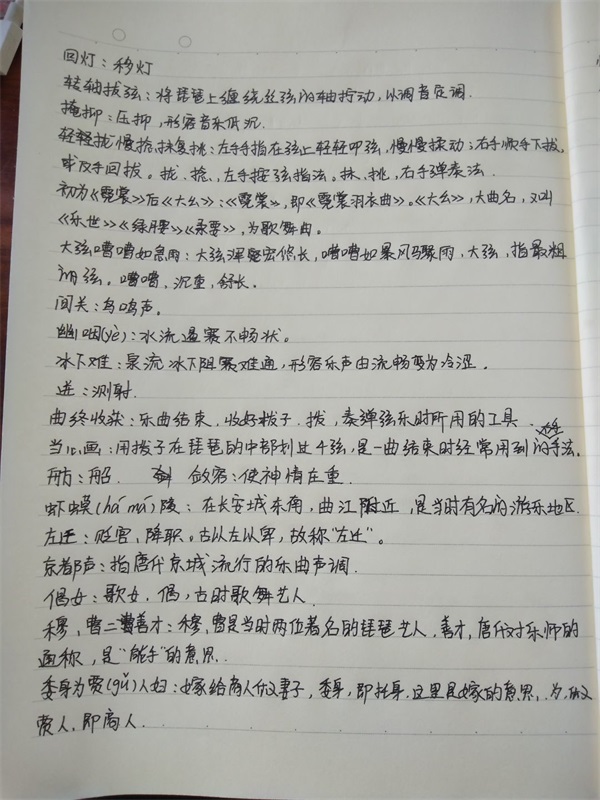 回灯：移灯
转轴拔弦：将琵琶上缠绕丝弦的轴拧动，以调音定调.
掩抑：压抑，形容音乐低沉.
轻轻拢慢捻抹复挑：左手手指在弦上轻轻叩弦，慢慢揉动；右手顺手下拔，
或反手回拔。拢、捻、左手按弦指法。抹、挑，右手弹奏法.
初为《霓裳》后《六幺》：《霓裳》，即《霓裳羽衣曲》。《六幺》，大曲名，又叫
《乐世》《绿腰》《录要》，为歌舞曲。
大弦嘈嘈如急雨：大弦浑宏悠长，嘈嘈如暴风骤雨，大弦，指最粗
的弦。嘈嘈，沉重，舒长。
间关：鸟鸣声。
幽咽(yè)：水流遏塞不畅状。
冰下难：泉流冰下阻塞难通，形容乐声由流畅变为冷涩。
迸：溅射.
曲终收拨：乐曲结束，收好拨子.拨，奏弹弦乐时所用的工具.
当心画：用拨子在琵琶的中部划过4弦，是一曲结束时经常用到的手法.
舫：船. 敛容：使神情庄重.
虾蟆(há má)陵：在长安城东南，曲江附近，是当时有名的游乐地区.
左迁：贬官，降职。古以左以卑，故称"左迁"。
京都声：指唐代京城流行的乐曲声调.
倡女：歌女，倡，古时歌舞艺人.
穆，曹二善才：穆，曹是当时两位著名的琵琶艺人，善才，唐代对乐师的
通称，是"能手"的意思.
委身为贾(gǔ)人妇：嫁给商人做妻子，委身，即托身.这里是嫁的意思.为，做
贾人，即商人.